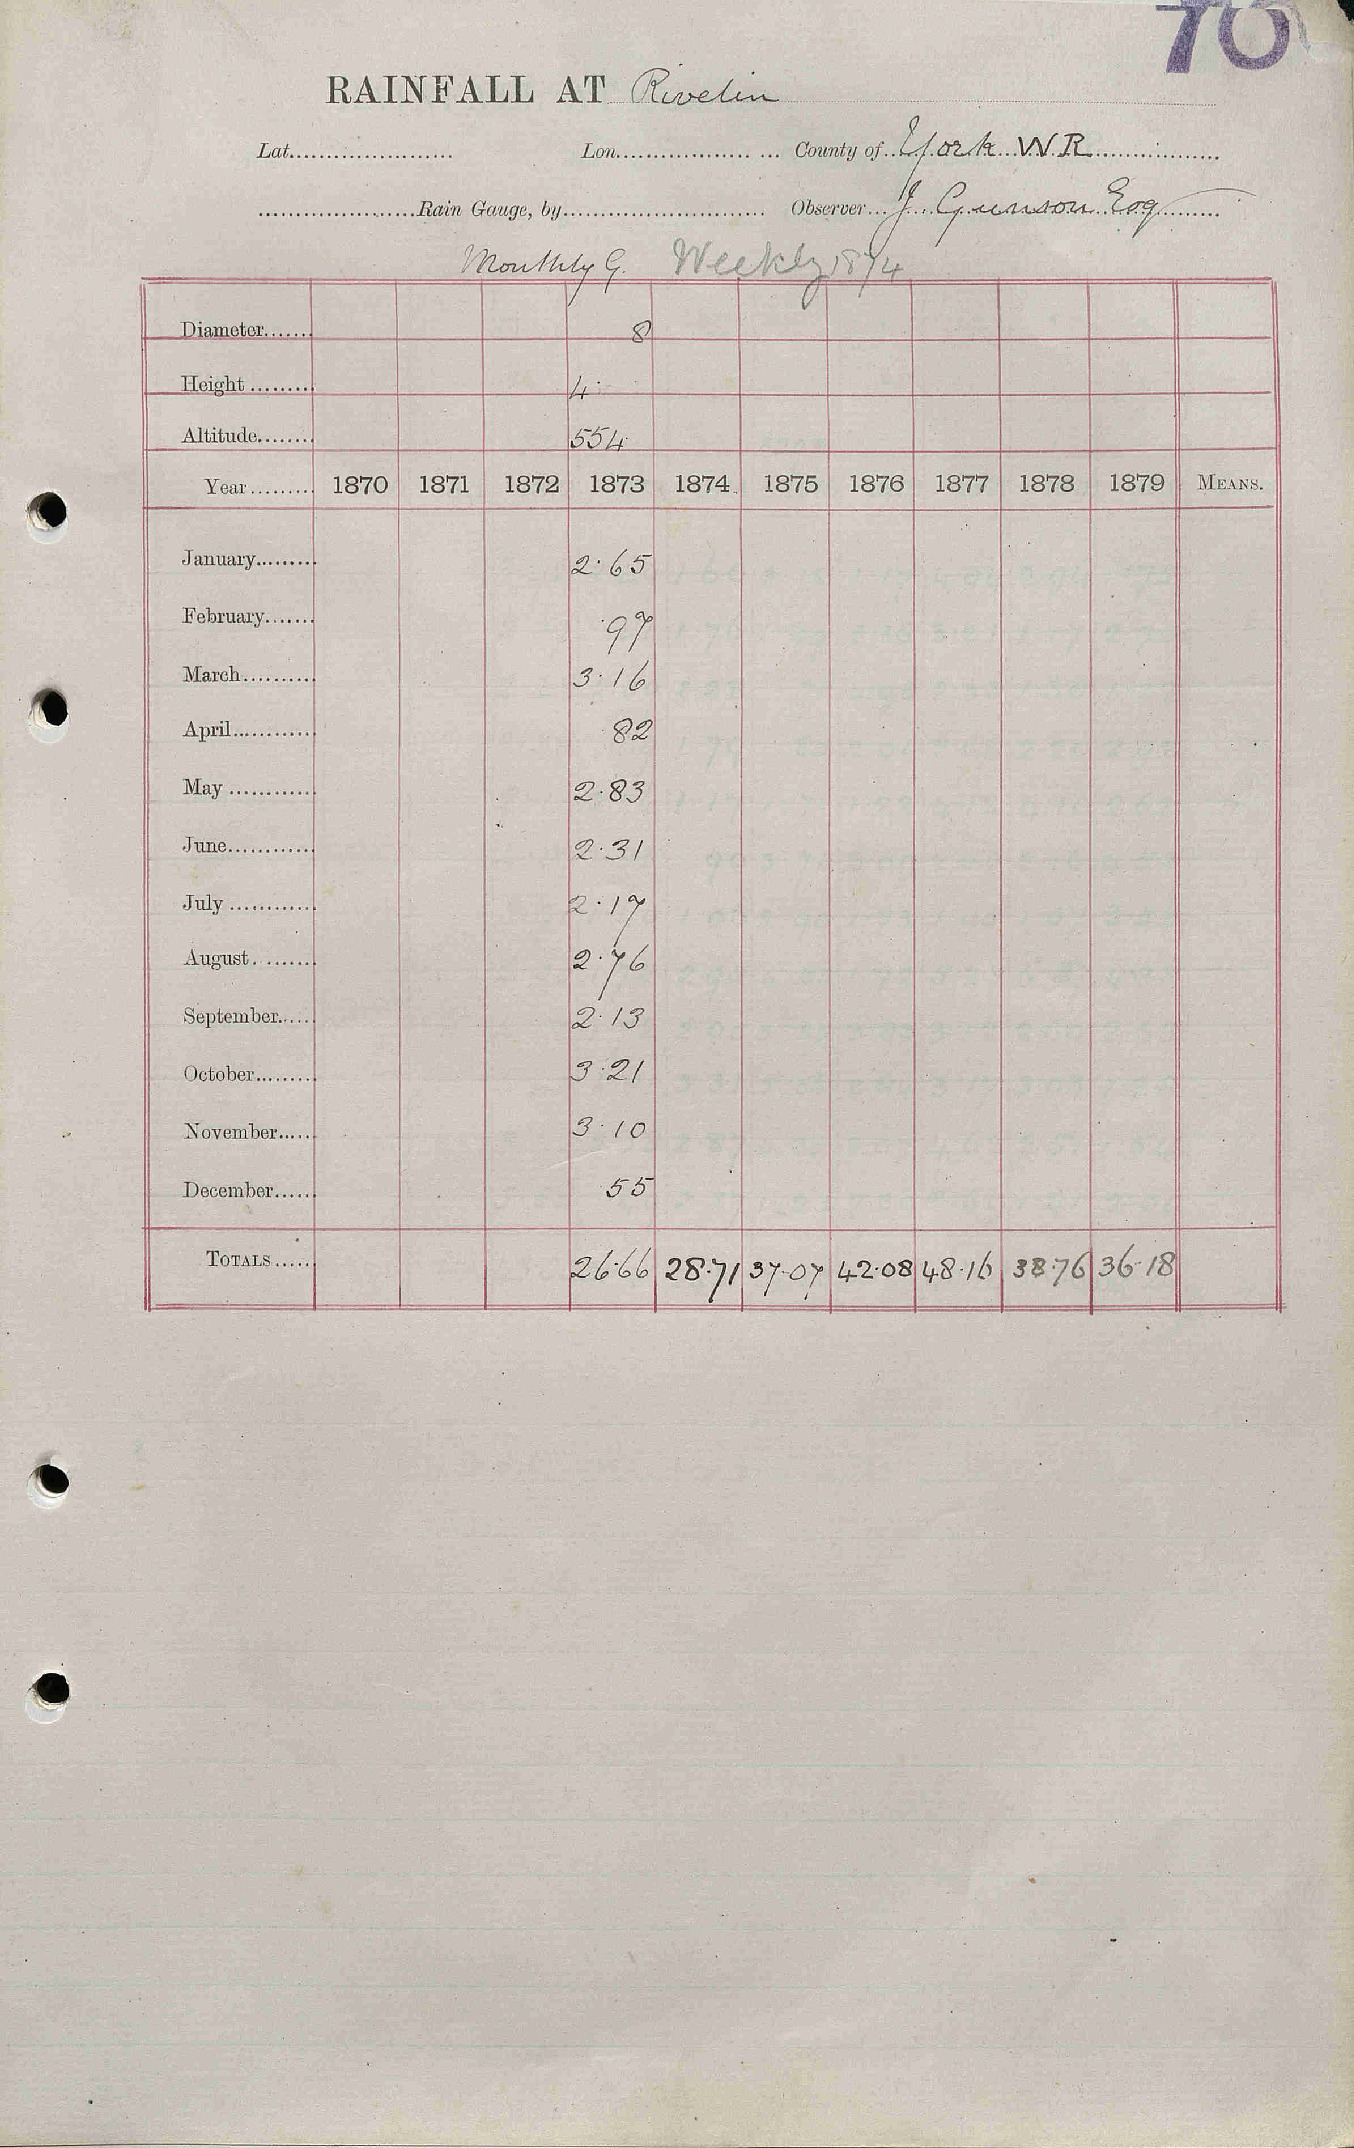 70
RAINFALL AT Rivelin
Lat...................... Lon.................. ... County of York W.R
......................Rain Gauge, by........................... Observer J. Gunson Esq
Monthly G. Weekly 1874
Diameter....... 8
Height ......... 4·
Altitude........ 554
Year......... 1870 1871 1872 1873 1874 1875 1876 1877 1878 1879 MEANS.
January......... 2·65
February....... ·97
March.......... 3·16
April............ 82
May ............ 2·83
June............ 2·31
July ............ 2·17
August......... 2·76
September..... 2·13
October......... 3·21
November..... 3·10
December...... 55
TOTALS..... 26·66 28·71 37·07 42·08 48·16 38·76 36·18